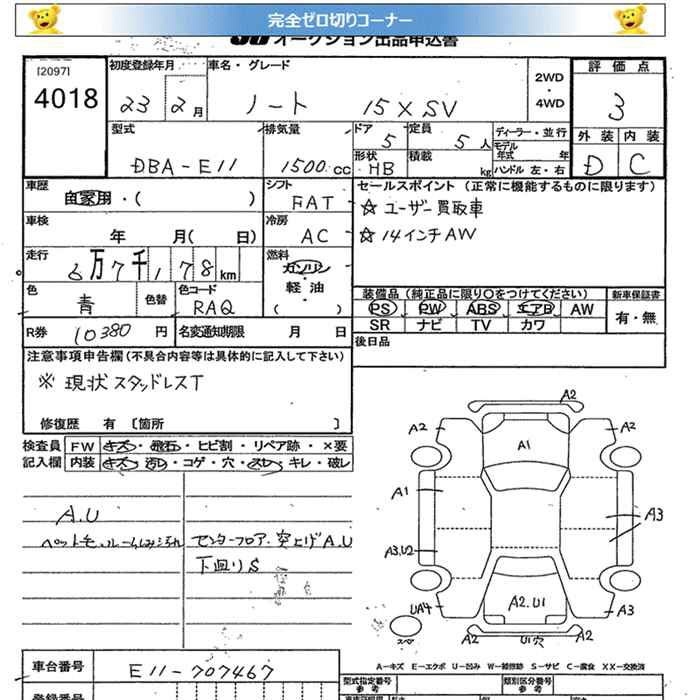 完全ゼロ切りコーナー
オークション出品申込書
[2097]
4018
初度登録年月
23 2月
車名・グレード
ノート 15X SV
2WD
・
4WD
評価点
3
外装 内装
D C
型式
DBA-E11
排気量
1500cc
ドア
5
定員
5人
形状
HB
積載
kg
ディーラー・並行
モデル年式 年
ハンドル 左・右
車歴
自家用・( )
シフト
FAT
セールスポイント (正常に機能するものに限ります)
☆ ユーザー買取車
☆ 14インチAW
車検
年 月( 日)
冷房
AC
走行
6万7千178km
燃料
ガソリン
・
軽油
( )
色
青
色替
色コード
RAQ
装備品 (純正品に限り○をつけてください)
PS PW ABS エアB AW
SR ナビ TV カワ
新車保証書
有・無
R券
10380円
名変通知期限
月 日
後日品
注意事項申告欄 (不具合内容等は具体的に記入して下さい)
※ 現状スタッドレスT
修復歴 有 [箇所 ]
検査員
記入欄
FW キズ・飛石・ヒビ割・リペア跡・×要
内装 キズ・汚れ・コゲ・穴・スレ・キレ・破レ
A.U
ペットモ、ルーム
センターフロア、突上げA.U
下廻りS
A2
A2
A2
A1
A1
A3
A3,U2
UA4
A2.U1
A3
U1穴
スペ
A-キズ E-エクボ U-凹み W-補修跡 S-サビ C-腐食 XX-交換済
車台番号
E11-707467
型式指定番号
参考
類別区分番号
参考
登録番号
長さ